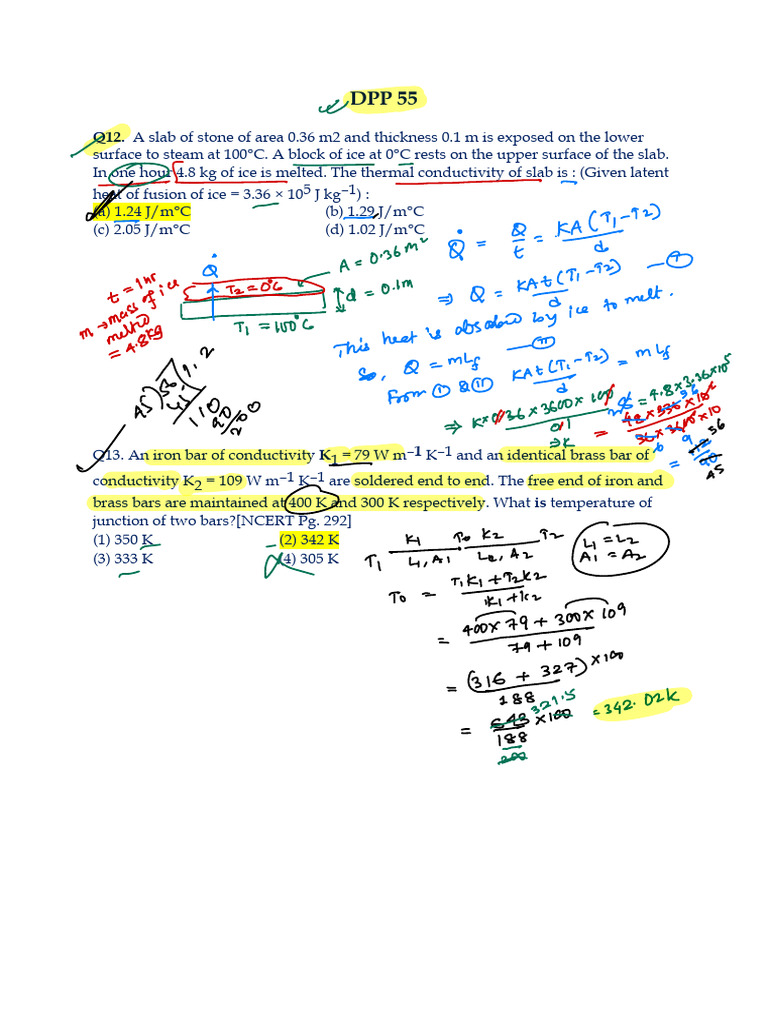 DPP 55
Q12. A slab of stone of area 0.36 m2 and thickness 0.1 m is exposed on the lower
surface to steam at 100°C. A block of ice at 0°C rests on the upper surface of the slab.
In one hour 4.8 kg of ice is melted. The thermal conductivity of slab is : (Given latent
heat of fusion of ice = 3.36 × 10⁵ J kg⁻¹) :
(a) 1.24 J/m°C (b) 1.29 J/m°C
(c) 2.05 J/m°C (d) 1.02 J/m°C
Q̇ = Q/t = KA(T1-T2)/d
⇒ Q = KAt(T1-T2)/d —①
Q̇
A = 0.36 m²
T2 = 0°C
d = 0.1m
T1 = 100°C
t = 1hr
m → mass of ice
melted
= 4.8kg
This heat is absorbed by ice to melt.
So, Q = mLf —②
From ① & ② KAt(T1-T2)/d = mLf
⇒ K×0.36 × 3600 × 100/0.1 = 4.8×3.36×10⁵
⇒ K = 48×336×10²/36×3600×10
=
56
45
Q13. An iron bar of conductivity K₁ = 79 W m⁻¹ K⁻¹ and an identical brass bar of
conductivity K₂ = 109 W m⁻¹ K⁻¹ are soldered end to end. The free end of iron and
brass bars are maintained at 400 K and 300 K respectively. What is temperature of
junction of two bars?[NCERT Pg. 292]
(1) 350 K (2) 342 K
(3) 333 K (4) 305 K
K1 T0 K2 T2
T1 L1, A1 L2, A2
L1 = L2
A1 = A2
T0 = T1K1+T2K2/K1+K2
= 400×79 + 300×109/79 + 109
= (316 + 327)×100/188
= 643×100/188
321.5
= 342.02k